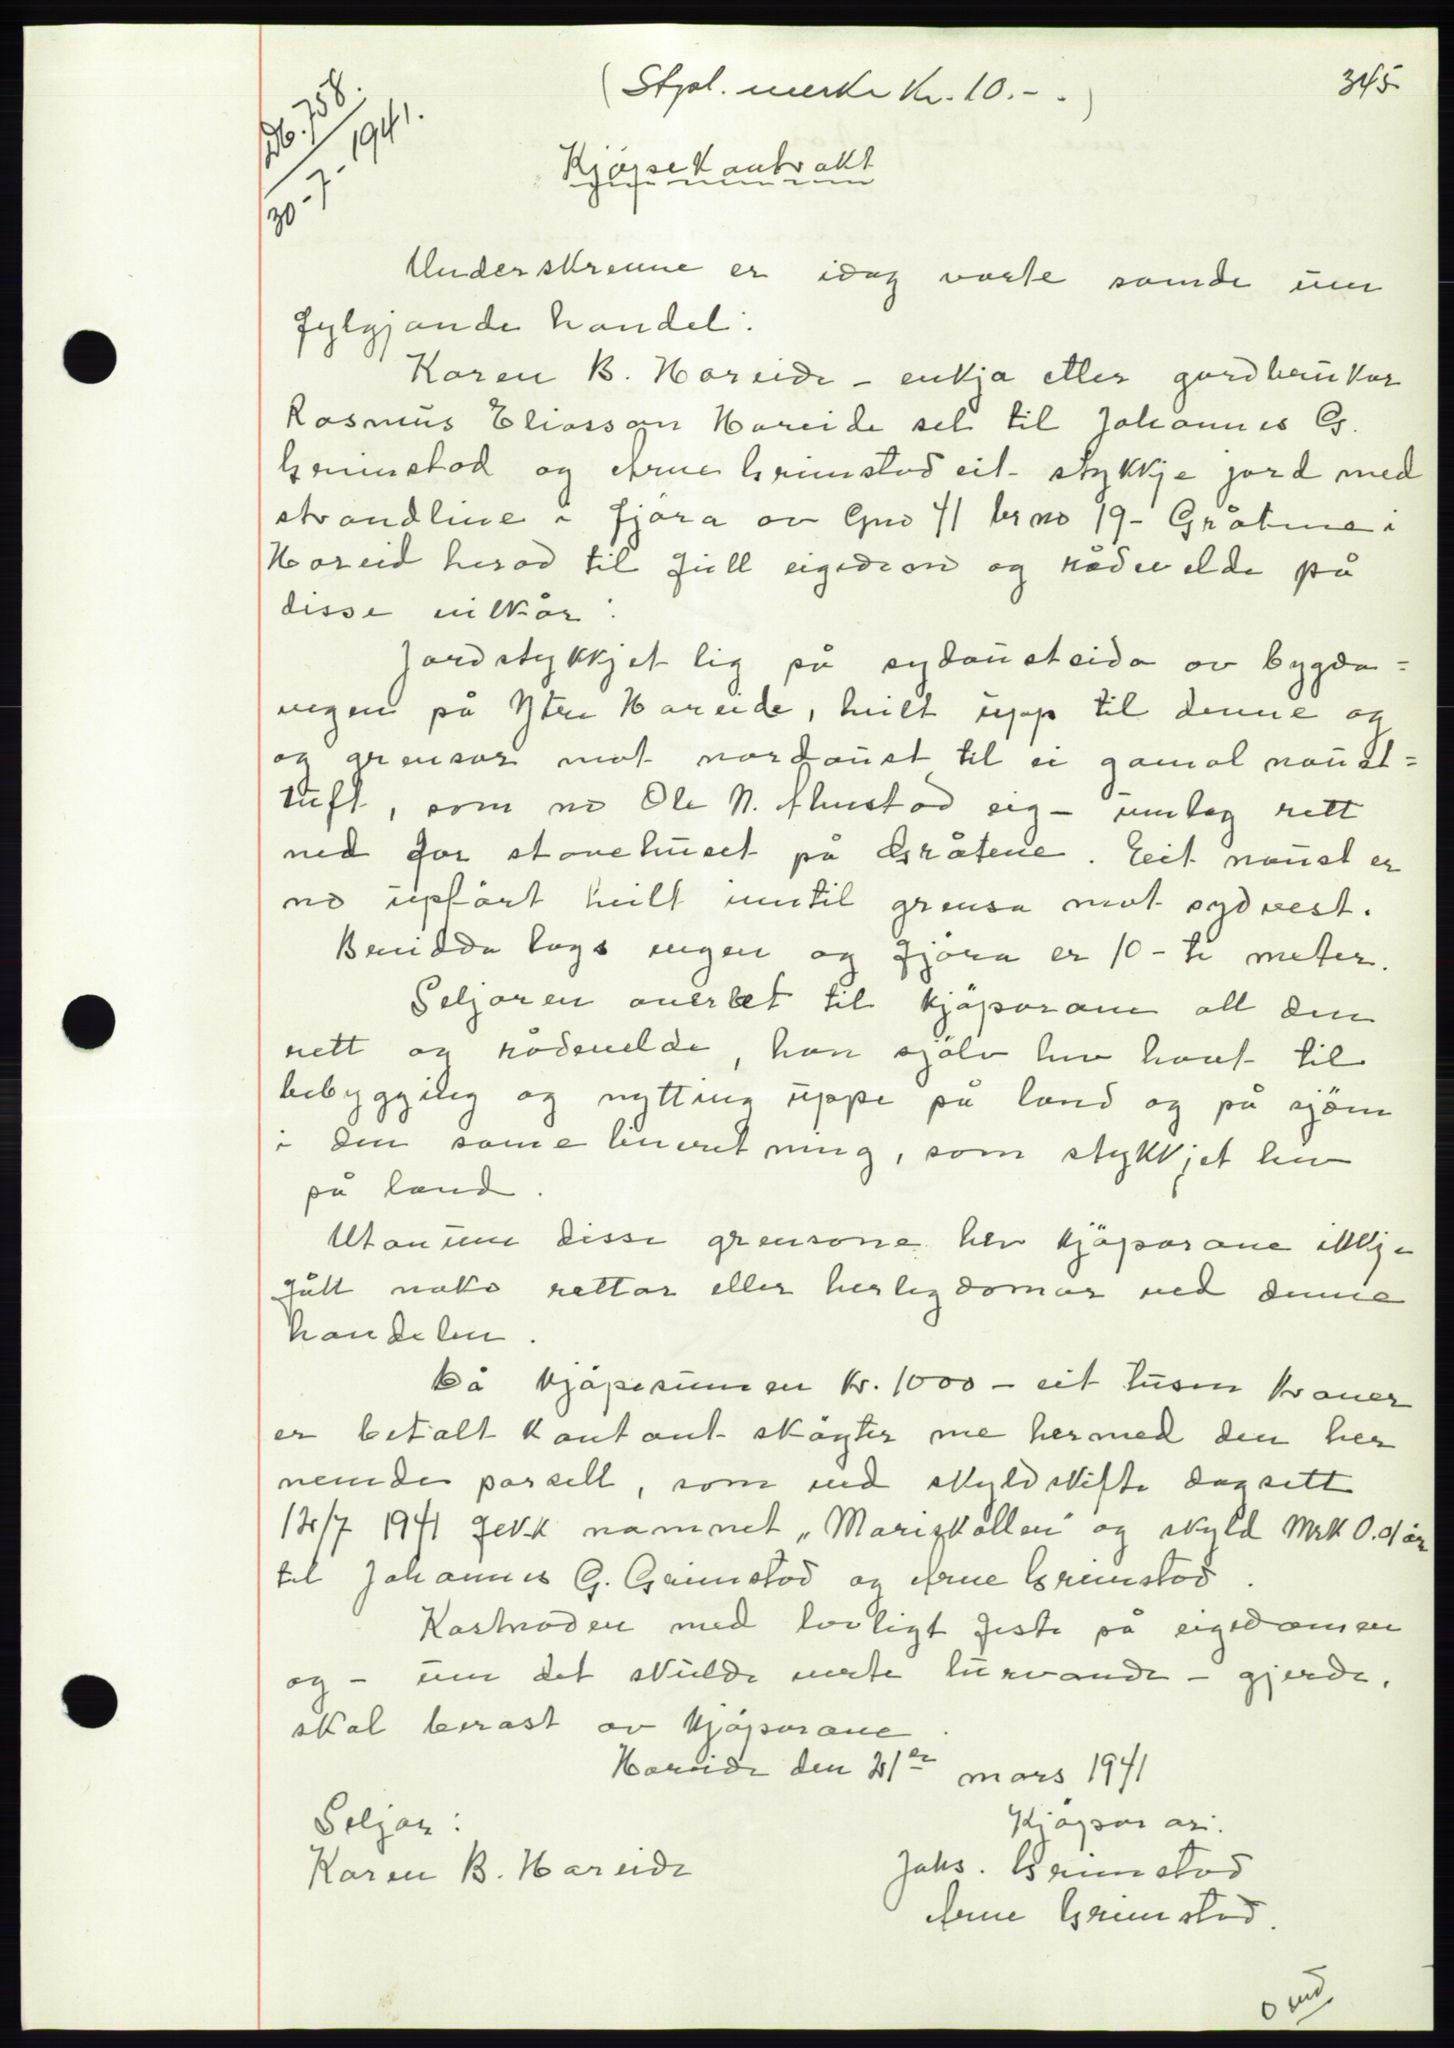 (Stpl. merke Kr. 10.- .)
345
Db. 758.
30-7-1941.
Kjöpsekontrakt
Underskrevne er idag vorte samde um
fylgjande handel:
Karen B. Hareide - enkja etter gardbrukar
Rasmus Eliasson Hareide sel til Johannes G.
Grimstad og Arne Grimstad eit stykkje jord med
strandline i fjöra av Gno 41 brno 19 - Gråtene i
Hareid herad til full eigedom og rådevelde på
disse vilkår:
Jordstykkjet lig på sydaustsida av bygda-
vegen på Ytre Hareide, heilt upp til denne og
og grensar mot nordaust til ei gamal naust-
tuft, som no Ole N. Almestad eig - umlag rett
ned for stovehuset på Gråtene. Eeit naust er
no upfört heilt inntil grensa mot sydvest.
Breidda langs vegen og fjöra er 10 - ti meter.
Seljaren overlet til kjöparane all den
rett og rådevelde, han sjölv hev havt til
bebygging og nytting uppe på land og på sjöen
i den same lineretning, som stykkjet hev
på land.
Utanum disse grensone hev kjöparane ikkje
fått noko rettar eller herlegdomar ved denne
handelen.
Då kjöpesummen kr. 1000 - eit tusen kroner
er betalt kontant sköyter me hermed den her
nemde parsell, som ved skyldskifte dagsett
12/7 1941 fekk namnet "Mariskollen" og skyld Mrk 0.01 öre
til Johannes G. Grimstad og Arne Grimstad.
Kostnaden med lovligt feste på eigedomen
og - um det skulde verte turvande - gjerde,
skal berast av kjöparane.
Hareide den 21en mars 1941
Seljar:
Kjöparar:
Karen B. Hareide
Johs. Grimstad
Arne Grimstad.